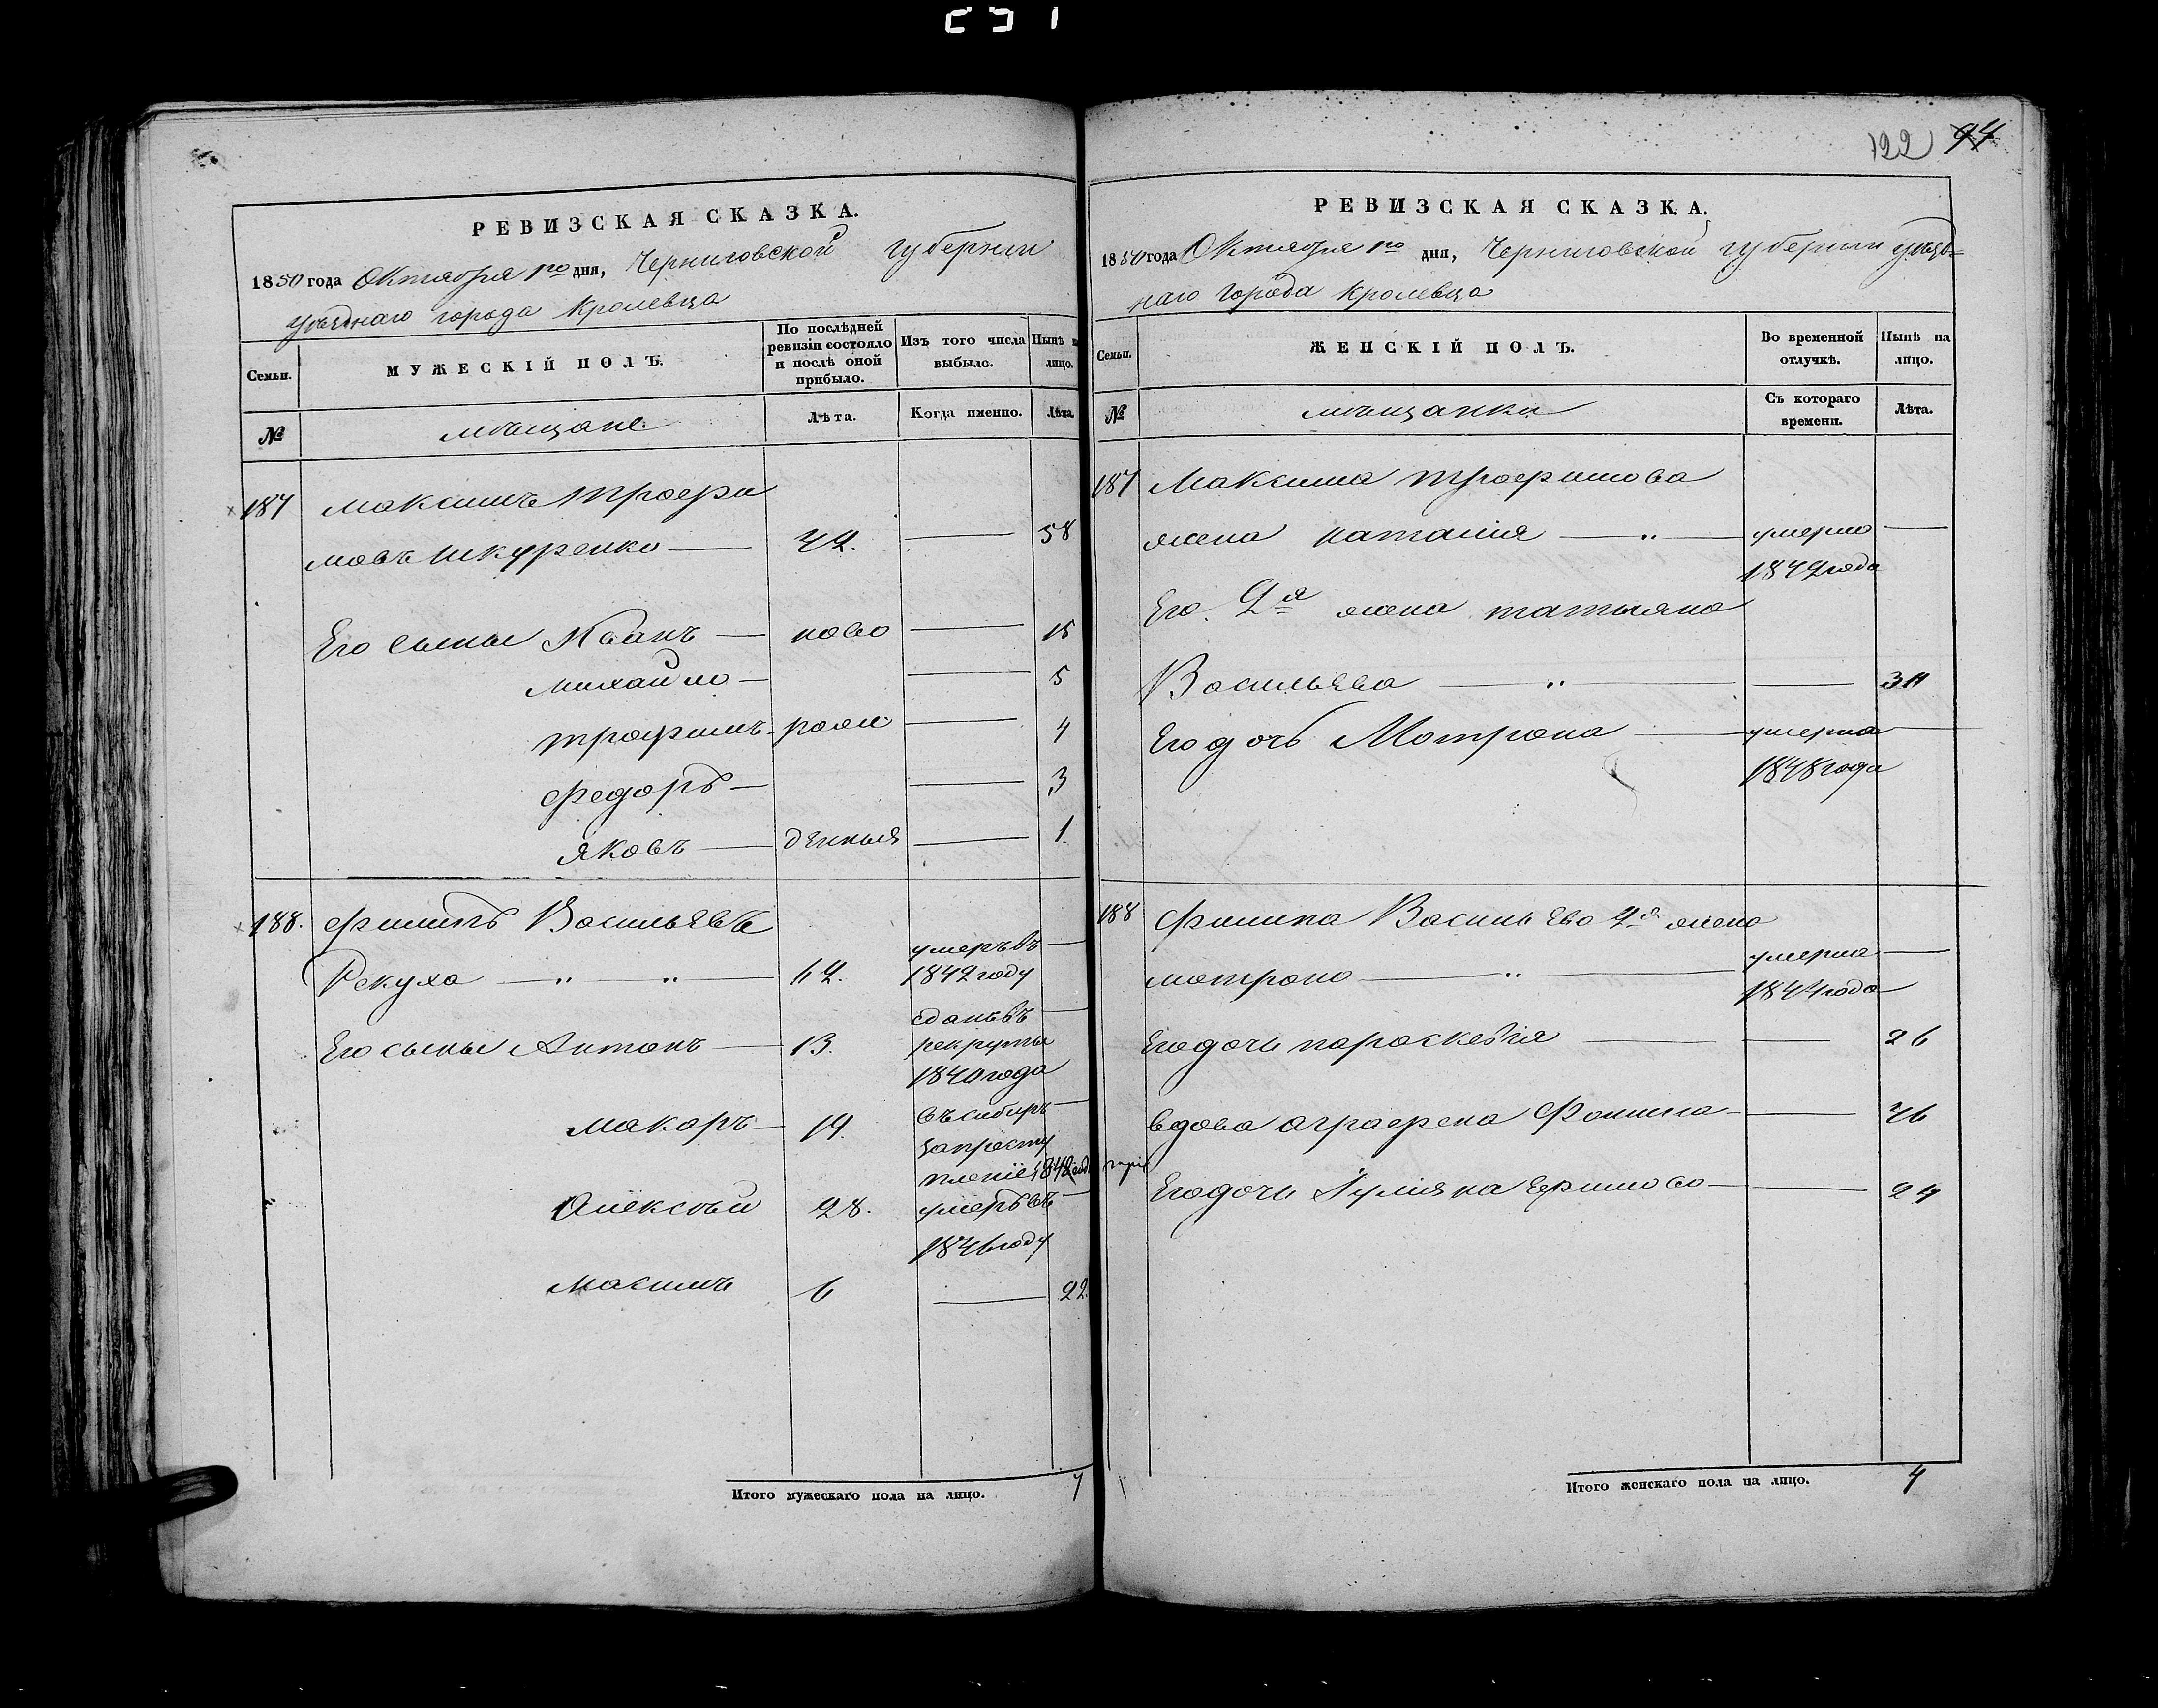 122 94
РЕВИЗСКАЯ СКАЗКА.
1850 года Октября 1го дня, Черниговской губернии
уѣзднаго города Кролевца
Семьи. МУЖЕСКІЙ ПОЛЪ. По послѣдней ревизіи состояло и послѣ оной прибыло. Изъ того числа выбыло. Нынѣ на лицо.
№ мѣщане Лѣта. Когда именно. Лѣта.
187 Максимъ Трофи
мовъ Шкуренко 42. 58
Его сыны Иванъ ново 15
Михайло 5
Трофимъ рож 4
Федоръ 3
Яковъ денныя 1
188. Филипъ Васильевъ
Рекуха 62. умеръ въ 1842 году
Его сыны Антонъ 13. сданъ въ рекруты 1840 года
Макаръ 19. въ сибирь за престу пленіе 1842 года
Алексѣй 28. умеръ въ 1846 году
Максимъ 6 22.
Итого мужескаго пола на лицо. 7
РЕВИЗСКАЯ СКАЗКА.
1850 года Октября 1го дня, Черниговской губерніи уѣзд=
наго города Кролевца
Семьи. ЖЕНСКІЙ ПОЛЪ. Во временной отлучкѣ. Нынѣ на лицо.
№ мѣщанки Съ котораго времени. Лѣта.
187 Максима Трофимова
жена Наталія умерла 1842 года
Его 2я жена Татьяна
Васильева 30
Его дочь Мотрона умерла 1848 года
188 Филипа Васильева 2я жена
Мотрона умерла 1844 года
Его дочь Параскевія 26
вдова Аграфена Фомина 46
Его дочь Іулияна Ефимова 24
Итого женскаго пола на лицо. 4